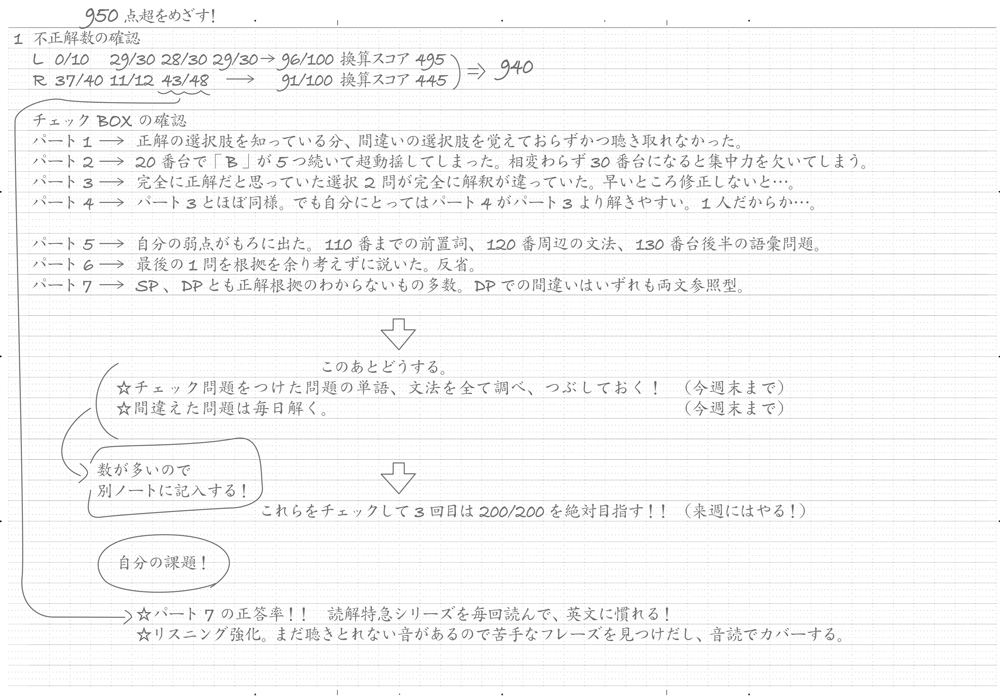 950 点超をめざす!
1 不正解数の確認
L 0/10 29/30 28/30 29/30 → 96/100 換算スコア 495
⇒ 940
R 37/40 11/12 43/48 → 91/100 換算スコア 445
チェック BOX の確認
パート 1 → 正解の選択肢を知っている分、間違いの選択肢を覚えておらずかつ聴き取れなかった。
パート 2 → 20 番台で「B」が 5 つ続いて超動揺してしまった。相変わらず 30 番台になると集中力を欠いてしまう。
パート 3 → 完全に正解だと思っていた選択 2 問が完全に解釈が違っていた。早いところ修正しないと…。
パート 4 → パート 3 とほぼ同様。でも自分にとってはパート 4 がパート 3 より解きやすい。1 人だからか…。
パート 5 → 自分の弱点がもろに出た。110 番までの前置詞、120 番周辺の文法、130 番台後半の語彙問題。
パート 6 → 最後の 1 問を根拠を余り考えずに説いた。反省。
パート 7 → SP、DP とも正解根拠のわからないもの多数。DP での間違いはいずれも両文参照型。
このあとどうする。
☆チェック問題をつけた問題の単語、文法を全て調べ、つぶしておく! (今週末まで)
☆間違えた問題は毎日解く。 (今週末まで)
数が多いので
別ノートに記入する!
これらをチェックして 3 回目は 200/200 を絶対目指す!! (来週にはやる!)
自分の課題!
☆パート 7 の正答率!! 読解特急シリーズを毎回読んで、英文に慣れる!
☆リスニング強化。まだ聴きとれない音があるので苦手なフレーズを見つけだし、音読でカバーする。